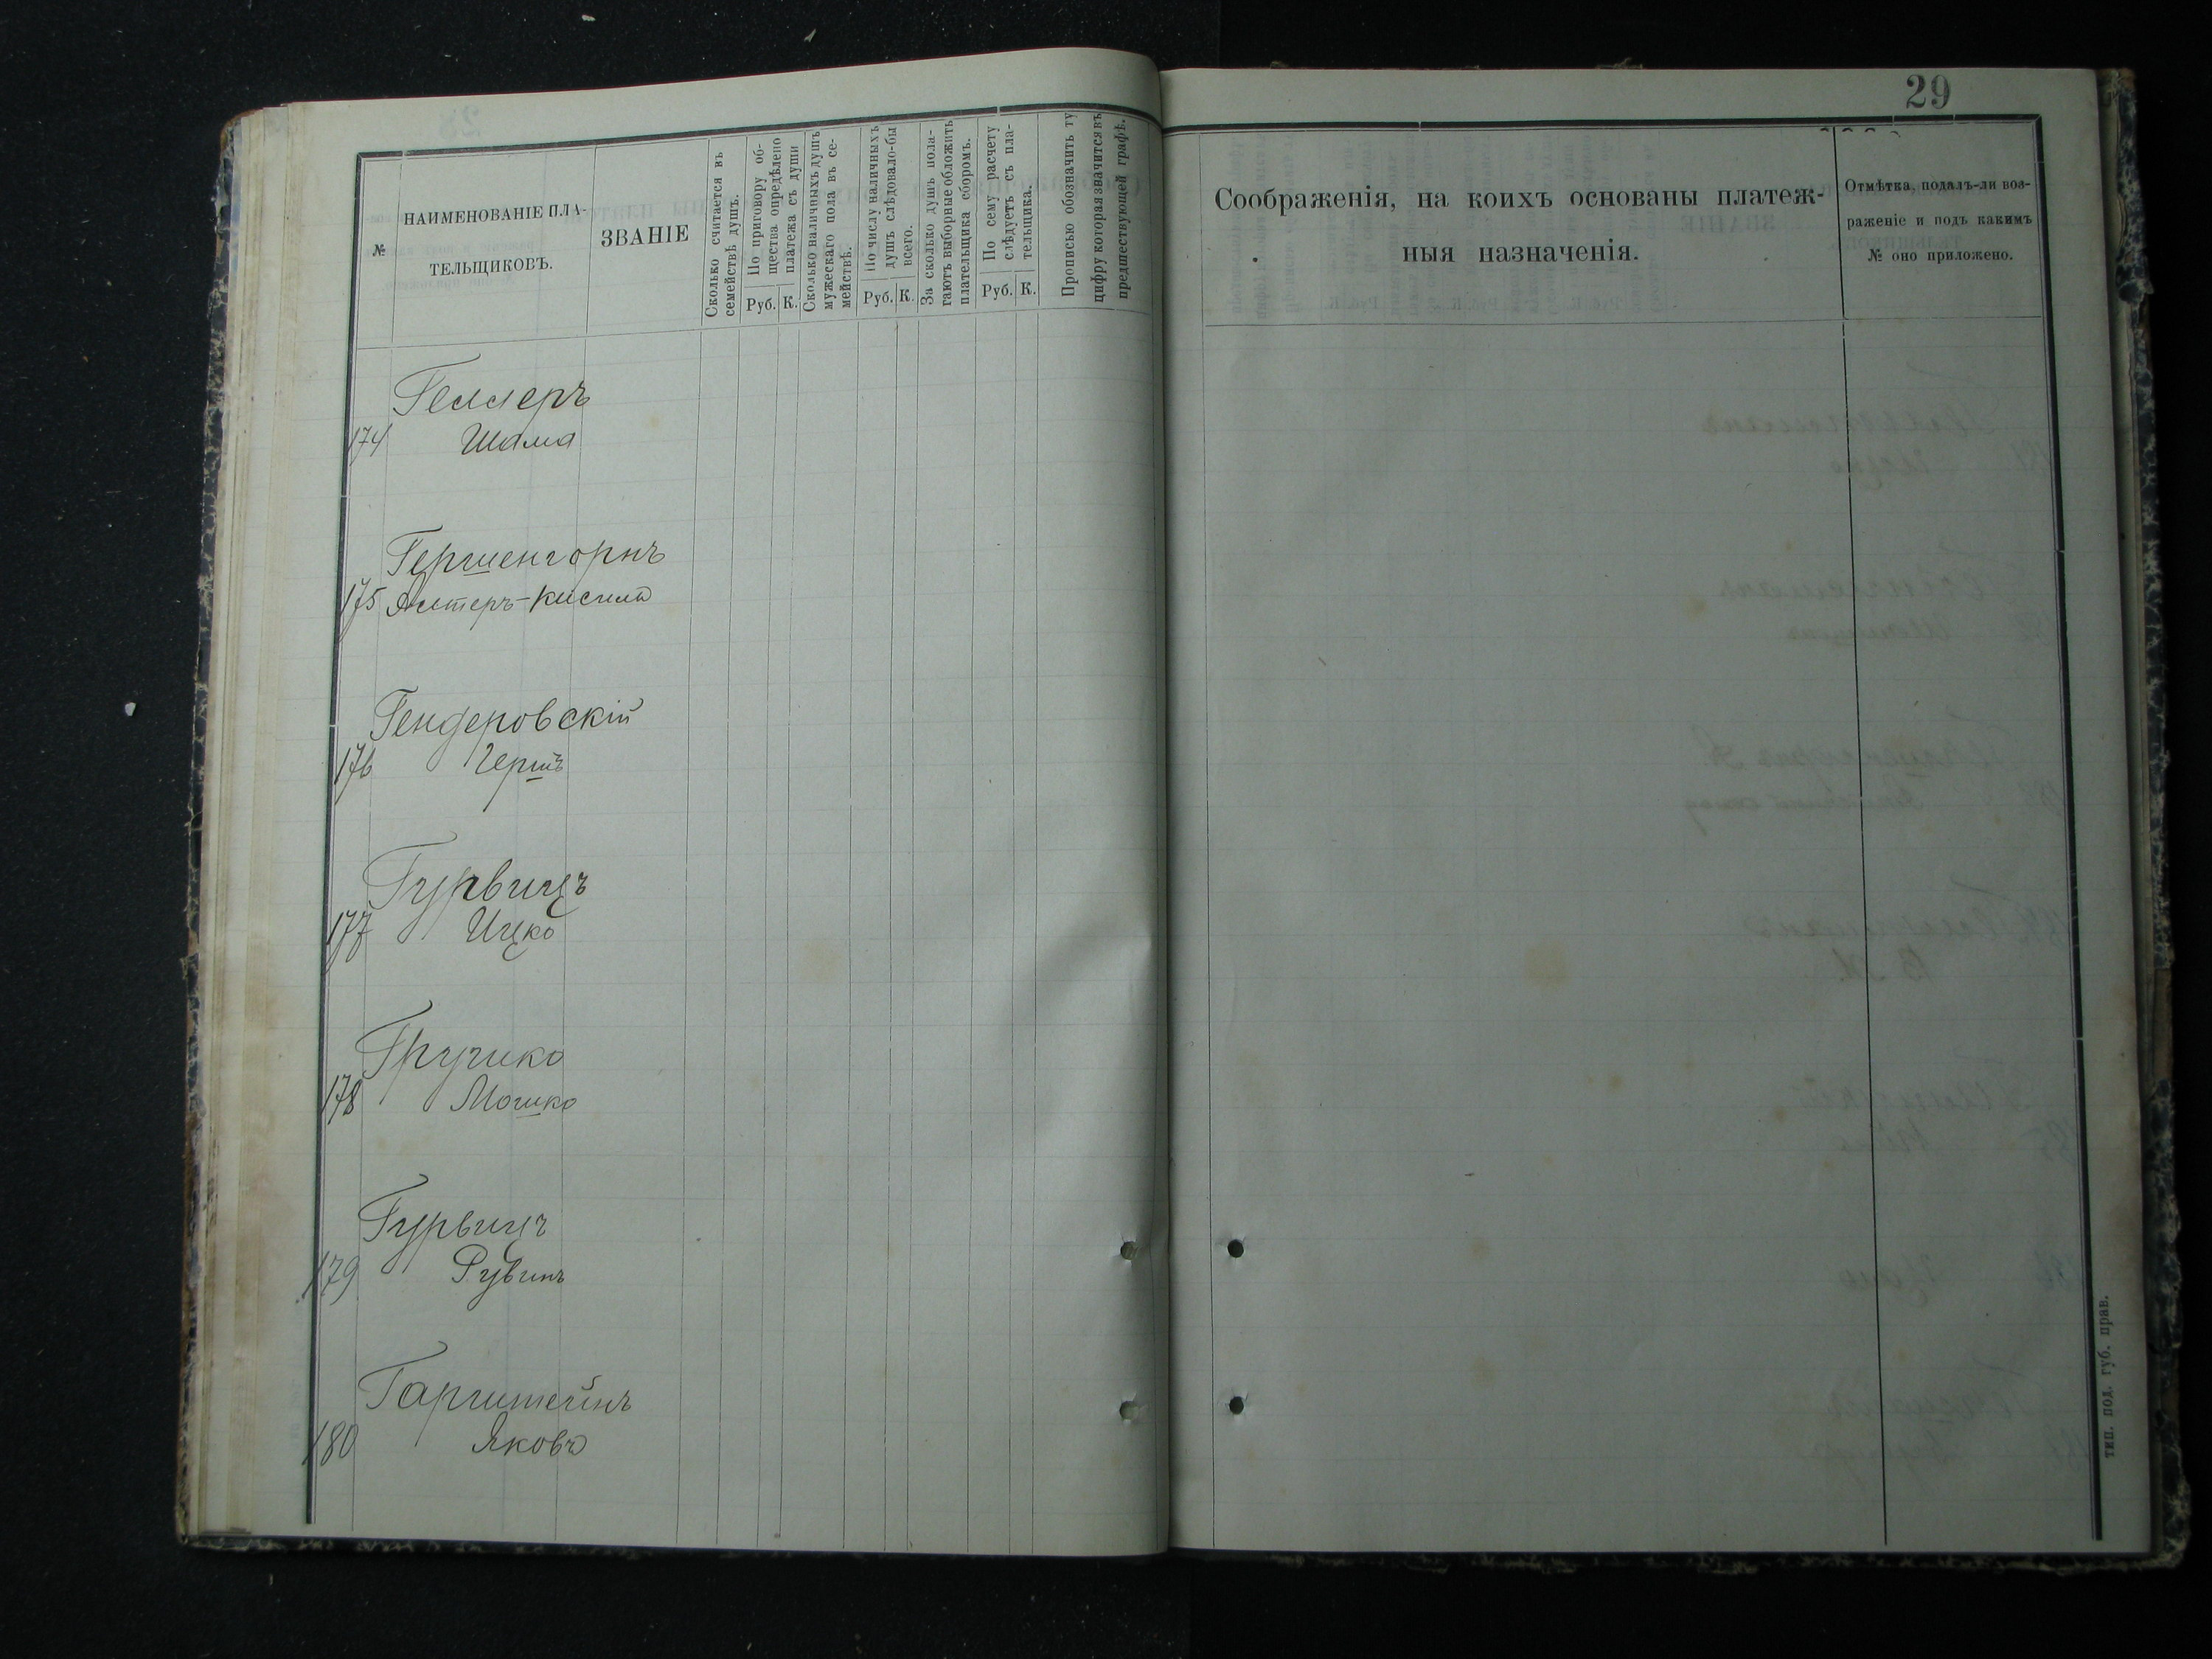 29
№
НАИМЕНОВАНІЕ ПЛА-
ТЕЛЬЩИКОВЪ.
ЗВАНІЕ
Сколько считается въ
семействѣ душъ.
По приговору об-
щества опредѣлено
платежа съ души
Руб. К.
Сколько наличныхъ душъ
мужескаго пола въ се-
мействѣ.
По числу наличныхъ
душъ слѣдовало-бы
всего.
Руб. К.
За сколько душъ пола-
гаютъ выборные обложить
плательщика сборомъ.
По сему расчету
слѣдуетъ съ пла-
тельщика.
Руб. К.
Прописью обозначить ту
цифру которая значится въ
предшествующей графѣ.
Соображенія, на коихъ основаны платеж-
ныя назначенія.
Отмѣтка, подалъ-ли воз-
раженіе и подъ какимъ
№ оно приложено.
Геллеръ
174 Шама
Гершенгорнъ
175 Алтеръ-Кисила
Гендеровскій
176 Гершъ
Гурвицъ
177 Ицко
Гручко
178 Мошко
Гурвицъ
179 Рувинъ
Гарштейнъ
180 Яковъ
тип. под. губ. прав.